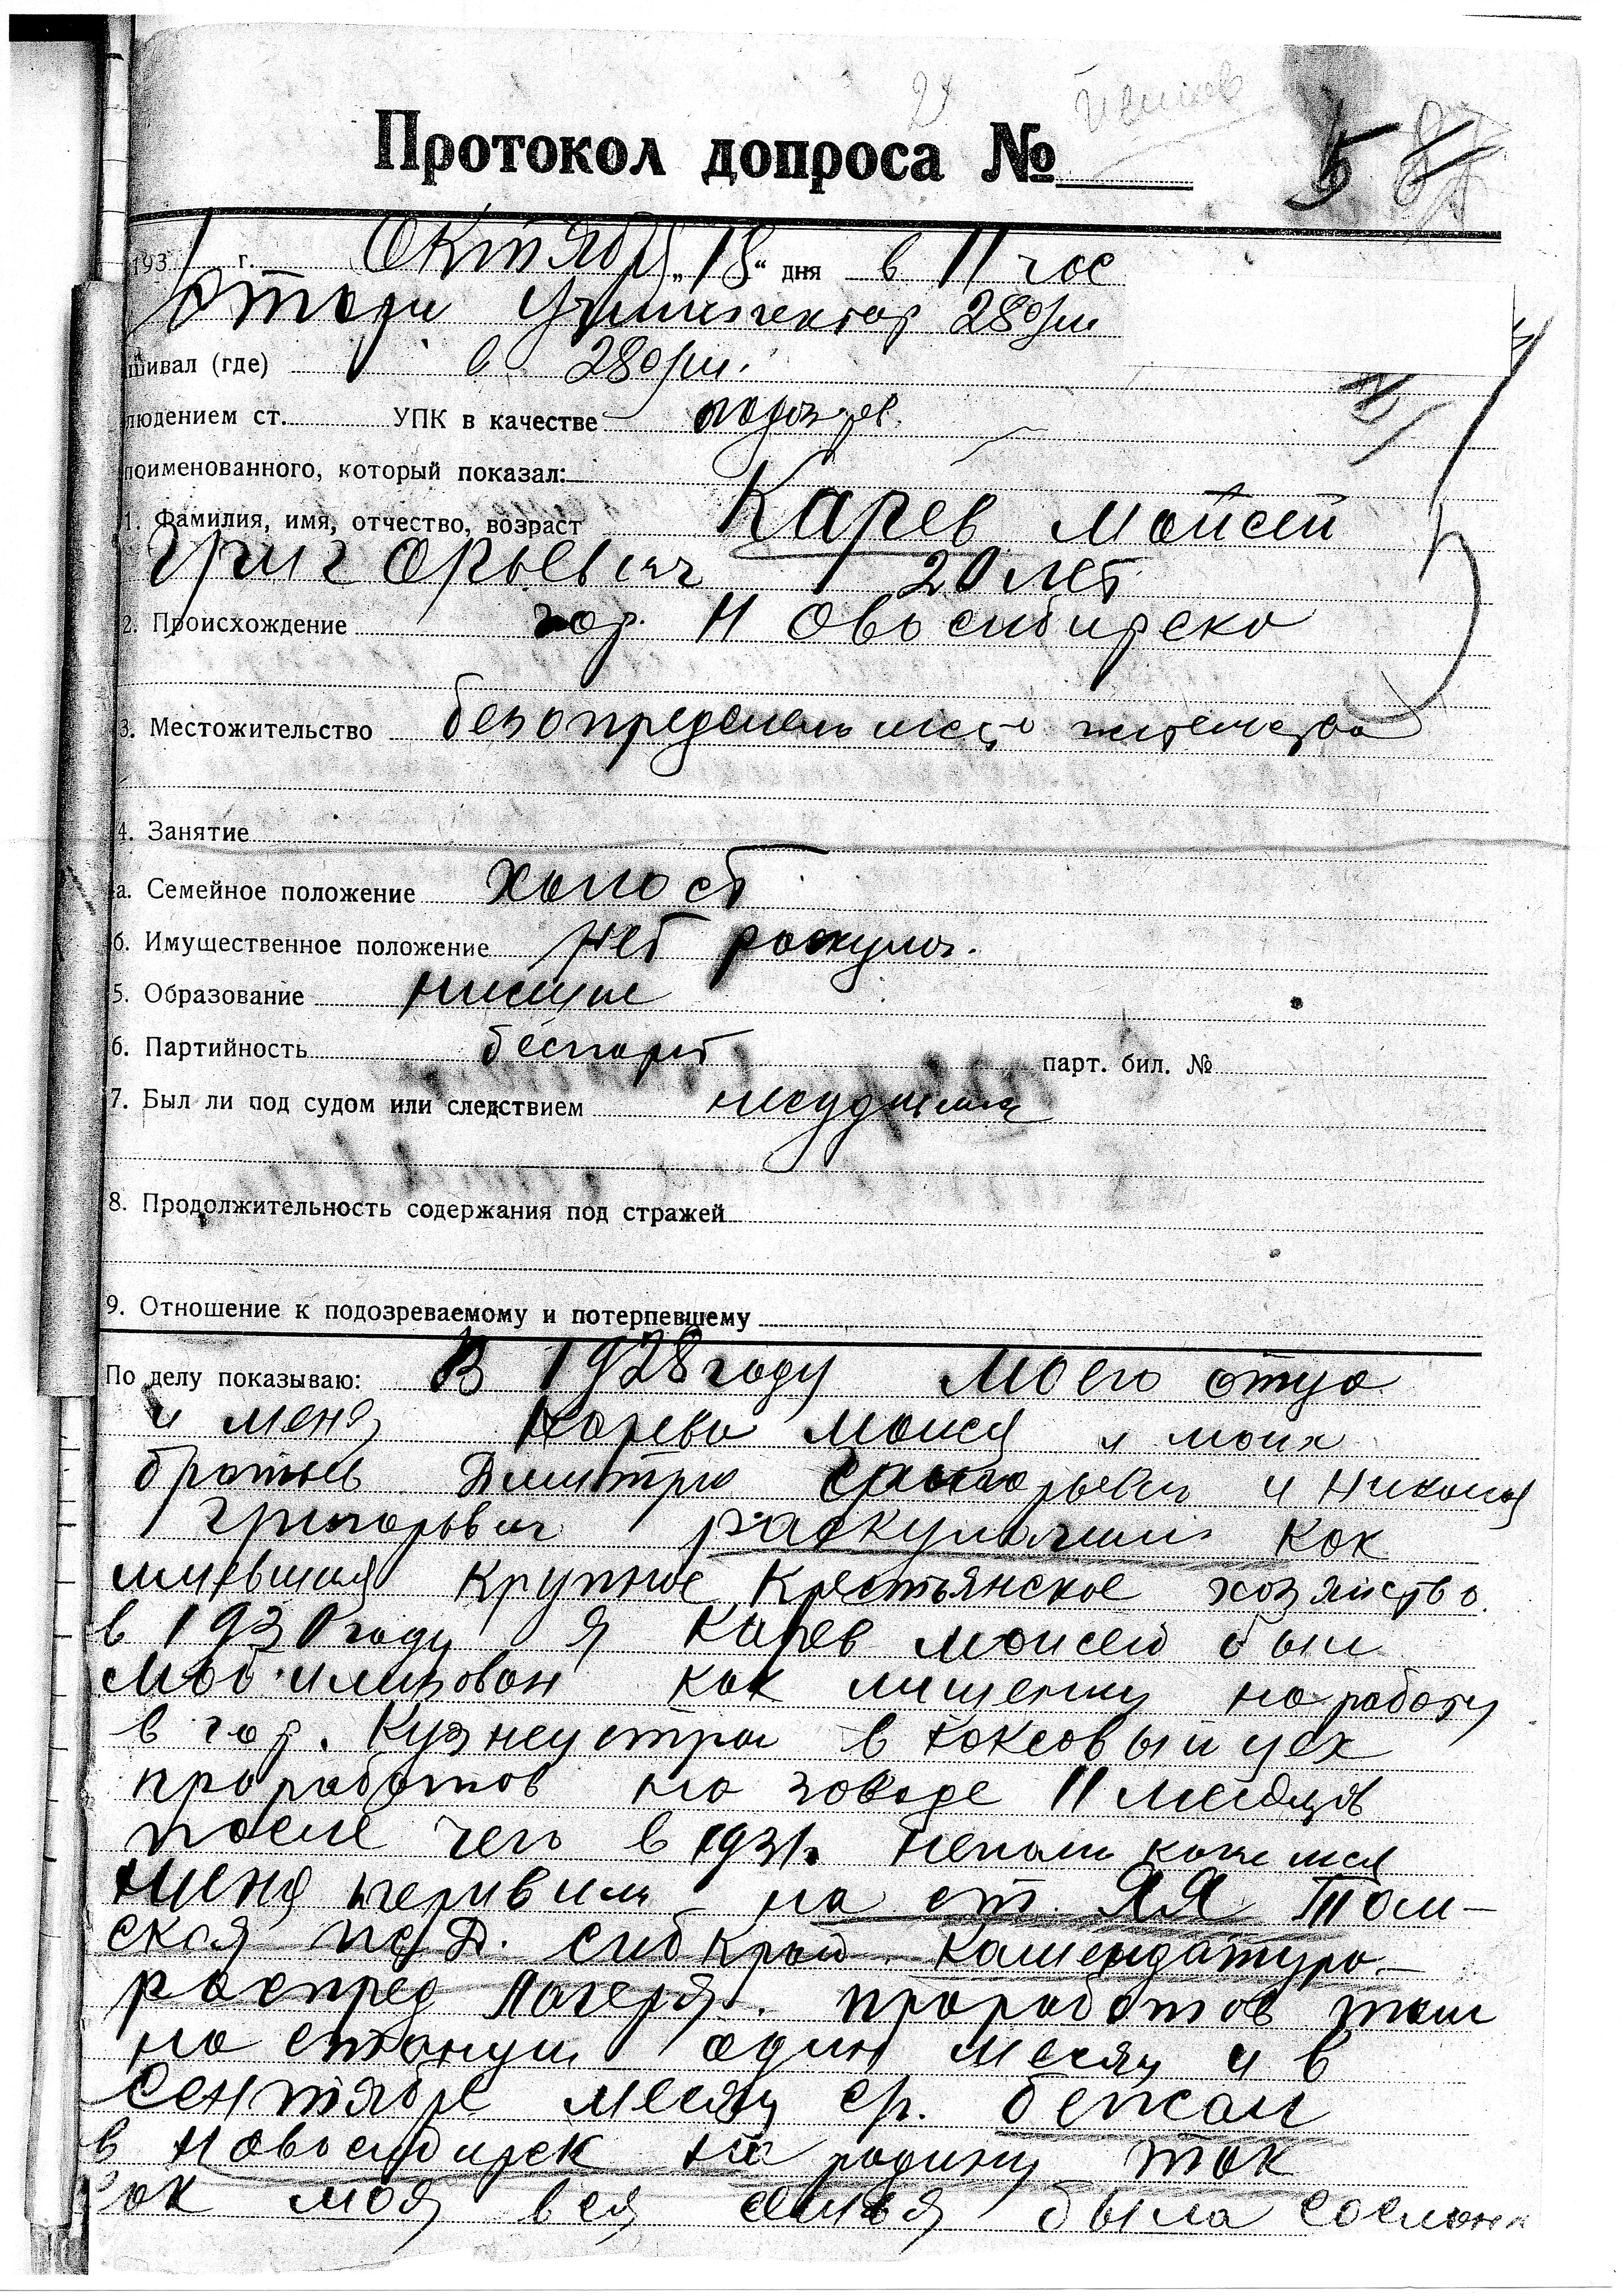 Протокол допроса №
5
1931 г. Октября „18“ дня в 11 час
28 о/м
шивал (где) в 28 о/м.
людением ст. УПК в качестве подозрев.
поименованного, который показал:
1. Фамилия, имя, отчество, возраст Карев Мойсей
Григорьевич 20 лет
2. Происхождение гор. Новосибирска
3. Местожительство без определен место жительства
4. Занятие
а. Семейное положение холост
б. Имущественное положение нет раскулач.
5. Образование низшие
6. Партийность беспарт парт. бил. №
7. Был ли под судом или следствием несудился
8. Продолжительность содержания под стражей
9. Отношение к подозреваемому и потерпевшему
По делу показываю: В 1928 году моего отца
и меня Карева Моисея и моих
братьев Дмитрия Григорьевич и Николая
Григорьевич раскулачили как
имевшия крупное крестьянское хозяйство.
в 1930 году я Карев Моисей был
мобилизован как лишенец на работу
в гор. Кузнецстрой в коксовый цех
проработав на заводе 11 месяцов
после чего в 1931г.
меня на ст. ЯЯ Том-
ская ж.Д. сибкрай камендатура
распред лагеря. проработав там
на станции один месяц и в
Сентябре месяц с/г. бежал
в Новосибирск на родину так
как моя вся семья была сослана